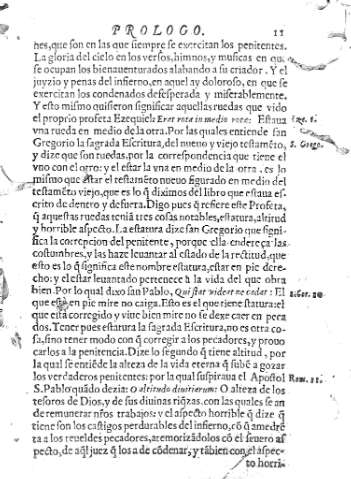 PROLOGO. 11
hes, que son en las que siempre se exercitan los penitentes.
La gloria del cielo en los versos, himnos, y musicas en qu
se ocupan los bienauenturados alabando a su criador. Y el
juyzio y penas del infierno, en aquel ay doloroso, en que se
exercitan los condenados desesperada y miserablemente.
Y esto mismo quisieron significar aquellas ruedas que vido
el proprio profeta Ezequiel: Erat rota in medio rotæ: Estaua
vna rueda en medio de la otra. Por las quales entiende san
Gregorio la sagrada Escritura, del nueuo y viejo testamẽto,
S. Grego.
y dize que son ruedas, por la correspondencia que tiene el
vno con el otro: y el estar la vna en medio de la otra, es lo
mismo que estar el testamẽto nueuo figurado en medio del
testamẽto viejo, que es lo q̃ diximos del libro que estaua es-
crito de dentro y defuera. Digo pues q̃ refiere este Profeta,
q̃ aquestas ruedas teniã tres cosas notables, estatura, altitud
y horrible aspecto. La estatura dize san Gregorio que signi-
fica la correpcion del penitente, porque ella endereça las
costumbres, y las haze leuantar al estado de la rectitud, que
esto es lo q̃ significa este nombre estatura, estar en pie dere-
cho: y el estar leuantado pertenece à la vida del que obra
bien. Por lo qual dixo san Pablo, Qui stat videat ne cadat: El
que està en pie mire no caiga. Esto es el que tiene statura: el
que està corregido y viue bien mire no se dexe caer en peca
dos. Tener pues estatura la sagrada Escritura, no es otra co-
sa, sino tener modo con q̃ corregir a los pecadores, y prouo
carlos a la penitencia. Dize lo segundo q̃ tiene altitud, por
la qual se entiẽde la alteza de la vida eterna q̃ subẽ a gozar
los verdaderos penitentes: por la qual suspiraua el Apostol
Rom. 11.
S. Pablo quãdo dezia: O altitudo diuitiarum: O alteza de los
tesoros de Dios, y de sus diuinas riq̃zas, con las quales se an
de remunerar nr̃os trabajos: y el aspecto horrible q̃ dize q̃
tiene son los castigos perdurables del infierno, cõ q̃ amedrẽ
ta a los reueldes pecadores, atemorizãdolos cõ el seuero as
pecto, de aq̃l juez q̃ los a de cõdenar, y tãbien con el aspec-
to horri-